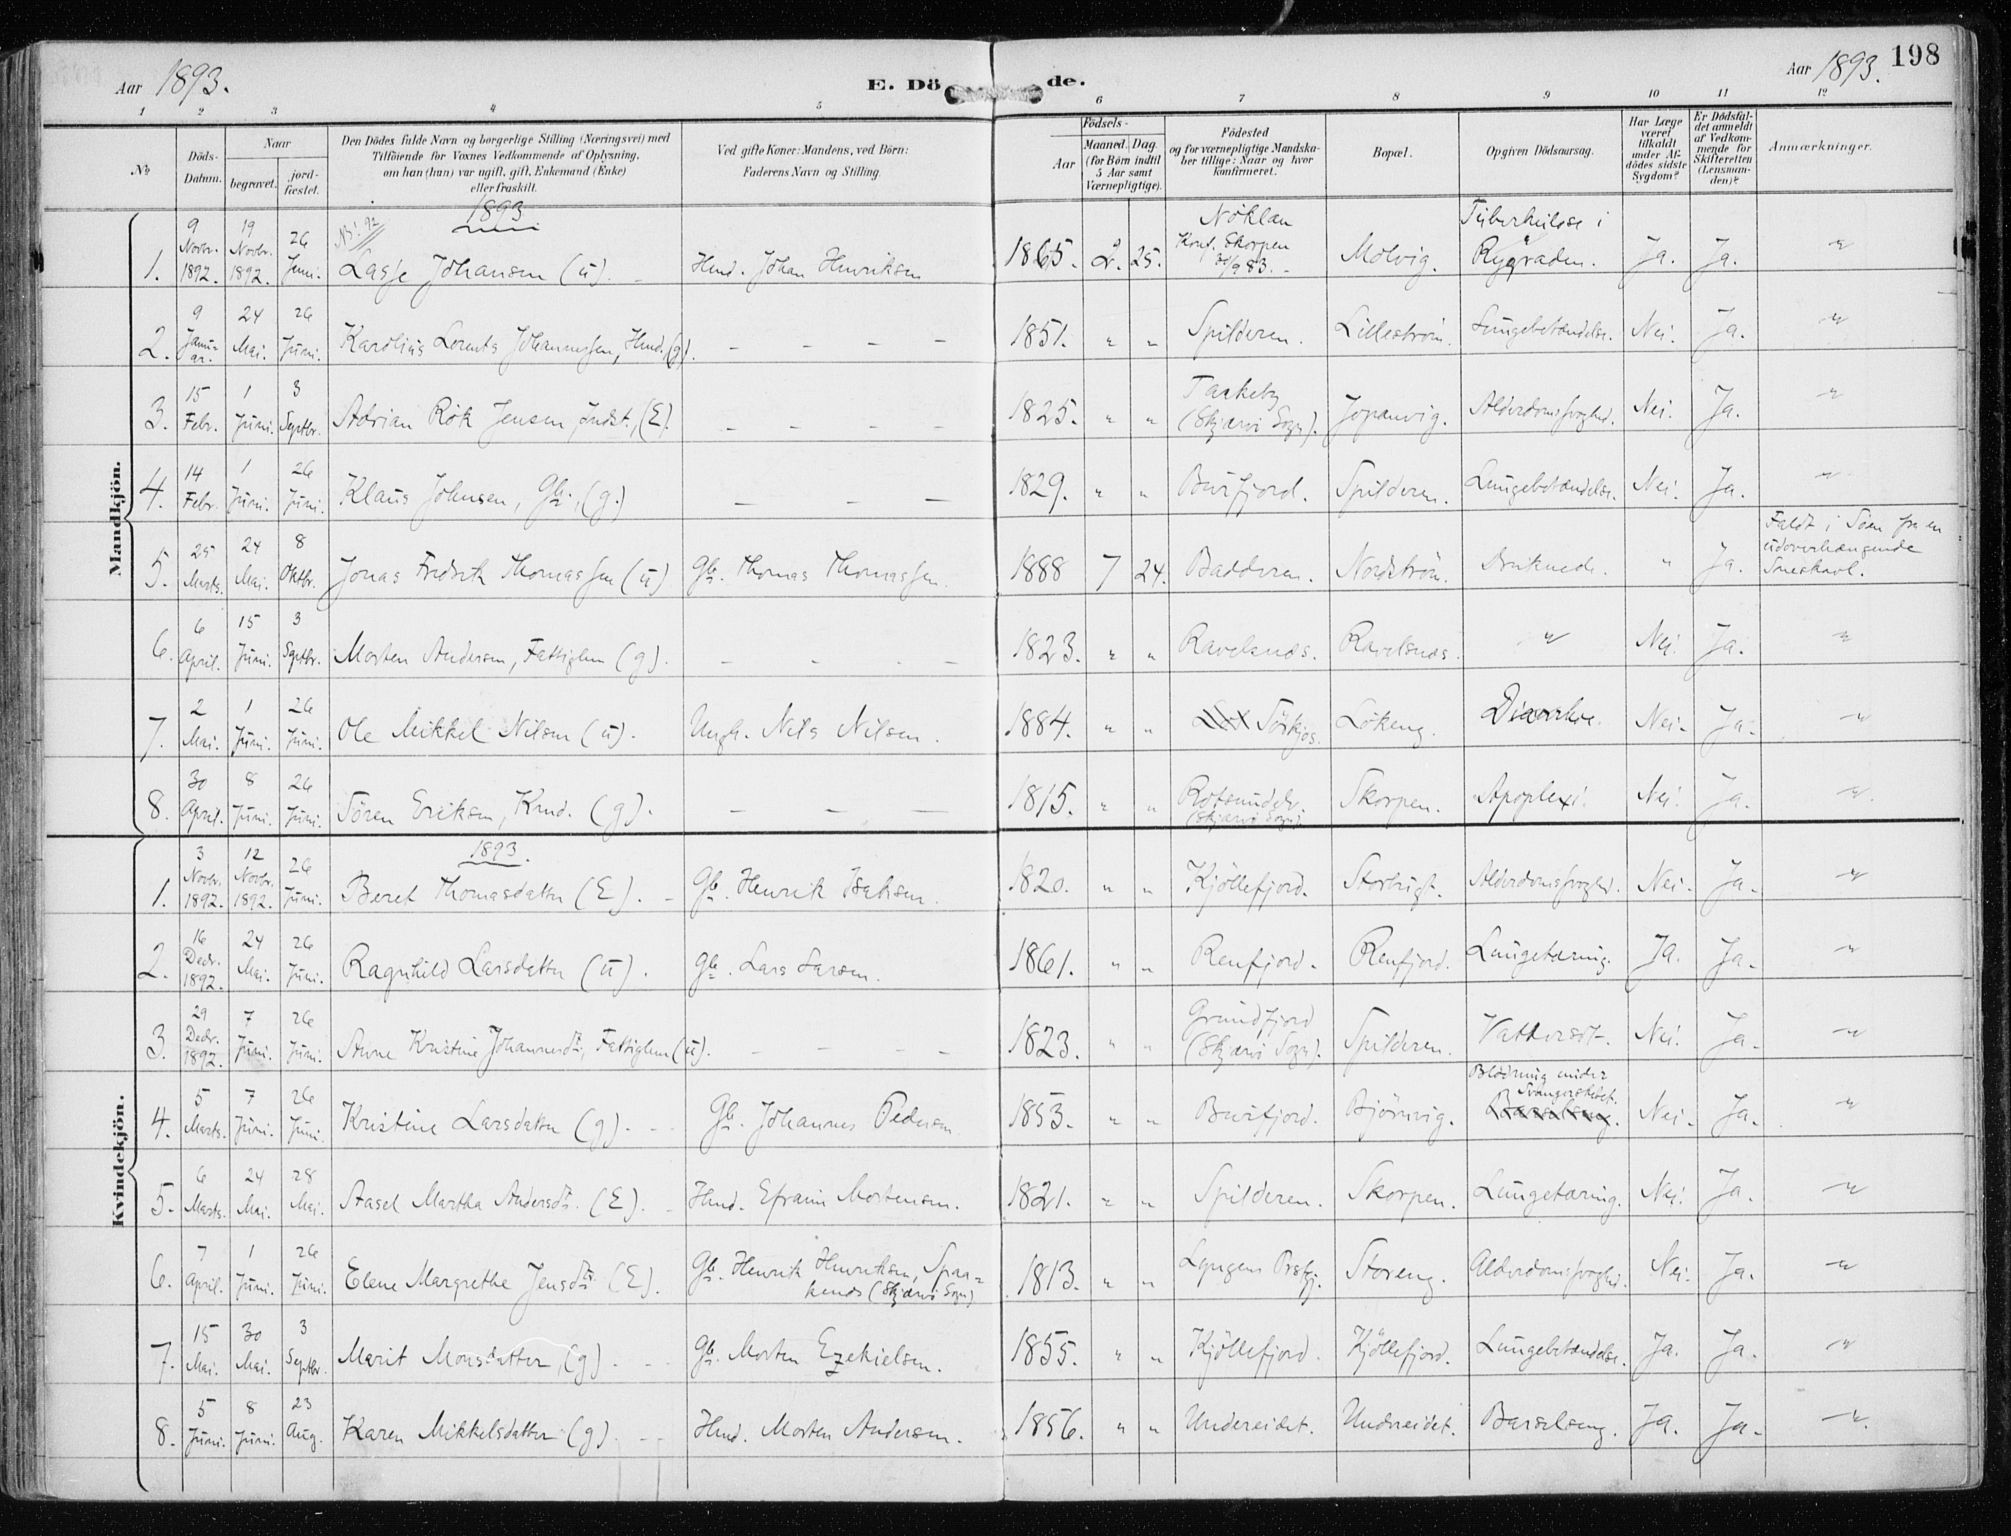 Aar 1893.
E. Döde.
Aar 1893.
198
1 2 3 4 5 6 7 8 9 10 11 12
No.
Döds-Datum.
Naar
begravet.
jord-fæstet.
Den Dödes fulde Navn og borgerlige Stilling (Næringsvei) med
Tilföiende for Voxnes Vedkommende af Oplysning,
om han (hun) var ugift, gift, Enkemand (Enke)
eller fraskilt.
Ved gifte Koner: Mandens, ved Börn:
Faderens Navn og Stilling.
Födsels-
Aar
Maaned. Dag.
(for Börn indtil
5 Aar samt
Værnepligtige).
Födested
og for værnepligtige Mandska-
ber tillige: Naar og hvor
konfirmeret.
Bopæl.
Opgiven Dödsaarsag.
Har Læge
været
tilkaldt
under Af-
dödes sidste
Sygdom?
Er Dödsfal-
det anmeldt
af Vedkom-
mende for
Skifteretten
(Lensman-
den)?
Anmærkninger.
Mandkjön.
1893
NB! 92
1. 9 Novbr. 1892. 19 Novbr. 1892. 26 Juni. Lasje Johansen (u). Hmd. Johan Henriksen 1865. 2. 25. Nöklan Konf. Skorpen 83. Molvig. Tuberkulose i Rygraden. Ja. Ja. "
2. 9 Januar. 24 Mai. 26 Juni. Karolius Lorents Johannessen, Hmd. (g). – – – – 1851. " " Spilderen. Lilleström. Lungebetændelse. Nei. Ja. "
3. 15 Febr. 1 Juni. 3 Septbr. Adrian Rök Jensen Indst., (E). – – – – 1825. " " Taskeby (Skjærvö Sogn). Jopanvig. Alderdomssvaghed. Nei. Ja. "
4. 14 Febr. 1 Juni. 26 Juni. Klaus Johnsen, Gb., (g.) – – – 1829. " " Burfjord. Spilderen. Lungebetændelse. Nei. Ja. "
5. 25 Marts. 24 Mai. 8 Oktbr. Jonas Fredrik Thomassen (u) Gb. Thomas Thomassen. 1888 7 24. Badderen. Nordström. Druknede. " Ja. Faldt i Söen fra en
udoverhængende
Sneskavl.
6. 6 April. 15 Juni. 3 Septbr. Morten Andersen, Fattiglem (g). – – – – 1823. " " Ravelsnæs. Ravelsnæs. " Nei. Ja. "
7. 2 Mai. 1 Juni. 26 Juni. Ole Mikkel Nilsen (u). Ungk. Nils Nilsen. 1884. " " Sörkjos. Lökeng. Diarrhoe. Nei. Ja. "
8. 30 April. 8 Juni. 26 Juni. Sören Eriksen, Kmd. (g). – – – 1815. " " Rotsundelv. (Skjærvö Sogn). Skorpen. Apoplexi. Nei. Ja. "
Kvindekjön.
1893.
1. 3 Novbr. 1892. 12 Novbr. 1892. 26 Juni. Beret Thomasdatter (E). Gb. Henrik Isaksen. 1820. " " Kjöllefjord. Storbugt. Alderdomssvaghed. Nei. Ja. "
2. 16 Decbr. 1892. 24 Mai. 26 Juni. Ragnhild Larsdatter (u). Gb. Lars Larsen. 1861. " " Renfjord. Renfjord. Lungetæring. Ja. Ja. "
3. 29 Decbr. 1892. 7 Juni. 26 Juni. Anne Kristine Johannesdtr, Fattiglem (u). – – – – 1823. " " Grundfjord (Skjærvö Sogn). Spilderen. Vattersot. Nei. Ja. "
4. 5 Marts. 7 Juni. 26 Juni. Kristine Larsdatter (g). Gb. Johannes Pedersen 1853. " " Burfjord. Björnvig. Blödning under Svangerskabet. Barselseng. Nei. Ja. "
5. 6 Marts. 24 Mai. 28 Mai. Aasel Martha Andersdtr. (E). Hmd. Efraim Mortensen. 1821. " " Spilderen. Skorpen. Lungetæring. Nei. Ja. "
6. 7 April. 1 Juni. 26 Juni. Elene Margrethe Jensdtr. (E). Gb. Henrik Henriksen, Spaakenæs (Skjærvö Sogn) 1813. " " Lyngen Prstgj. Storeng. Alderdomssvaghed. Nei. Ja. "
7. 15 Mai. 30 Mai. 3 Septbr. Marit Monsdatter (g). Gb. Morten Ezekielsen. 1855. " " Kjöllefjord. Kjöllefjord. Lungebetændelse. Ja. Ja. "
8. 5 Juni. 8 Juni. 23 Aug. Karen Mikkelsdatter (g). Hmd. Morten Andersen. 1856. " " Undereidet. Undereidet. Barselseng. Ja. Ja. "